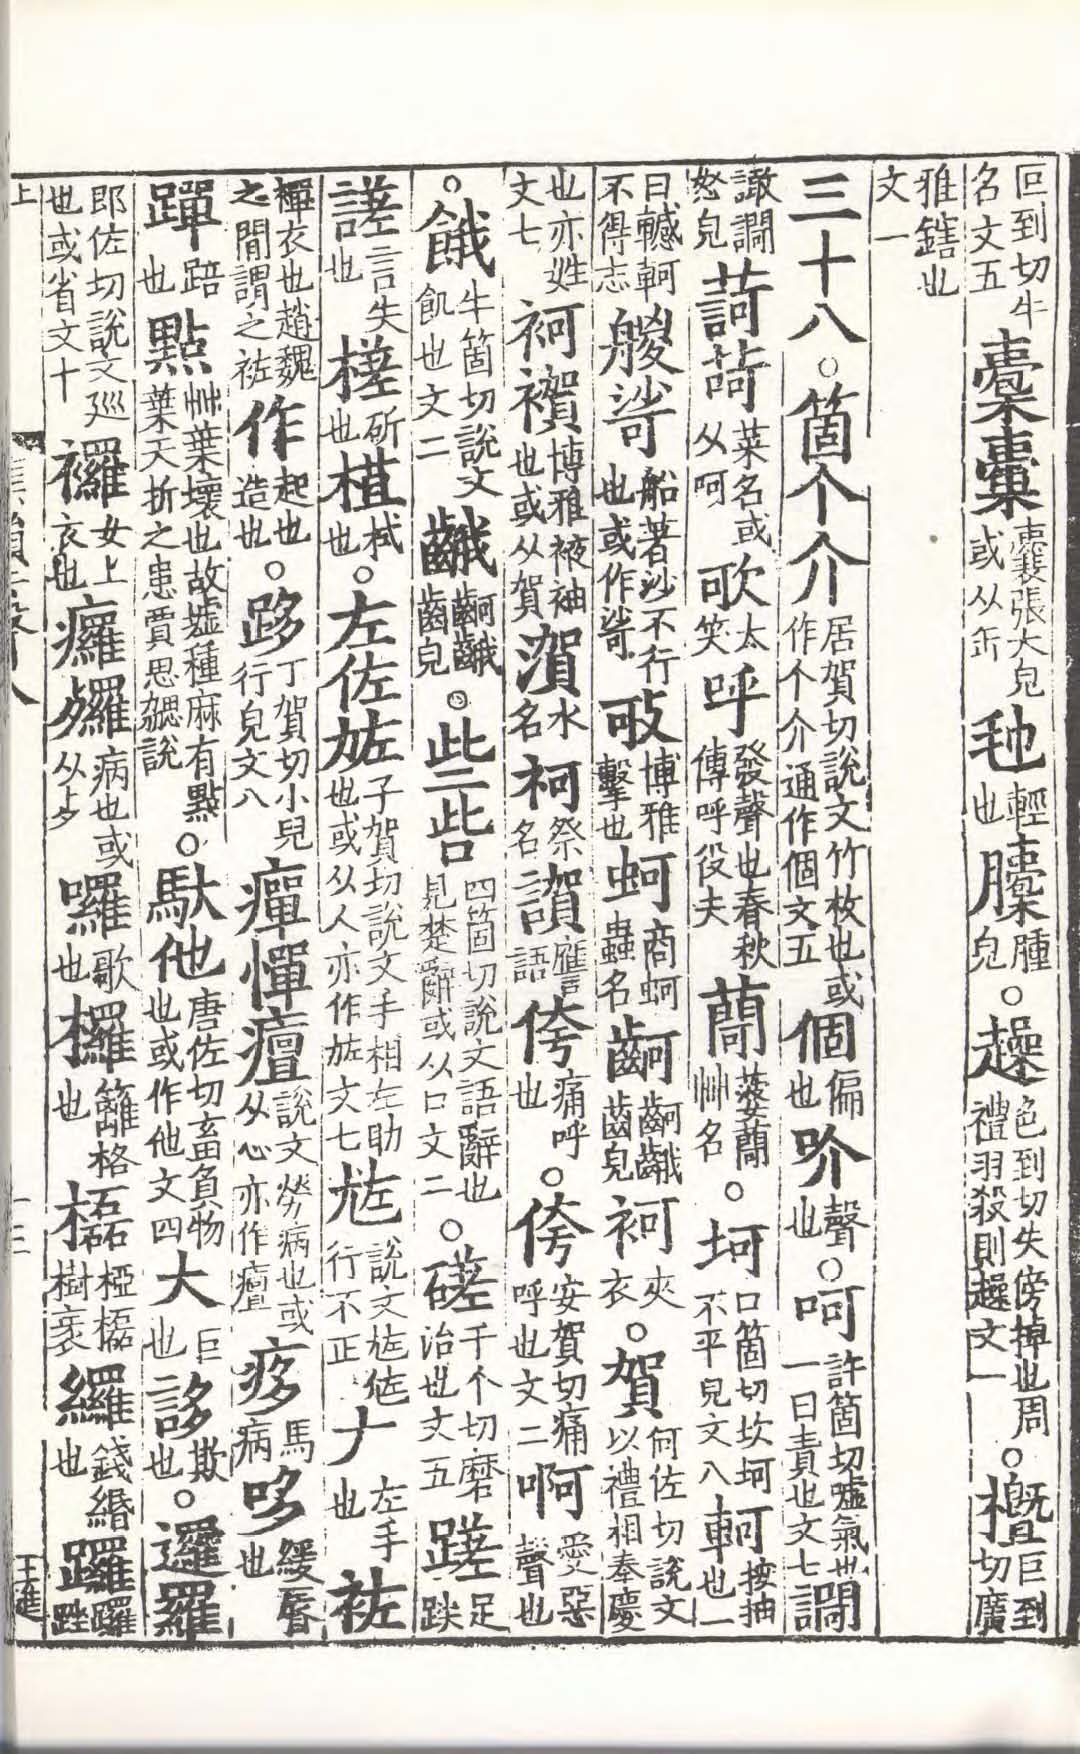 叵到切牛名文五櫜囊囊張大皃或从缶毑輕也臑腫皃○趮色到切失傍掉也周禮羽殺則趮文一○櫭巨到切廣
雅鎋也文一
三十八○箇个介居賀切說文竹枚也或作个介通作個文五個偏也吤聲也○呵許箇切噓氣也一曰責也文七譋
譀譋怒皃訶苛菜名或从呵歌太笑呼發聲也春秋傳呼役夫藺蔢藺艸名○坷口箇切坎坷不平皃文八軻按抽也一
曰轗軻不得志艐䯊船著沙不行也或作䯊㪃博雅擊也蚵商蚵蟲名齣齣齹齒皃袔夾衣○賀何佐切說文以禮相奉慶
也亦姓文七袔䙔博雅袯袖也或从賀㵑水名祠祭名謮譍語侉痛呼也○侉安賀切痛呼也文二啊愛惡聲也
○餓牛箇切說文飢也文二齹齣齹齒皃○些呰四箇切說文語辭也見楚辭或从口文二○磋千个切磨治也文五蹉足跌
謯言失也槎斫也柤栻也○左佐㝾子賀切說文手相左助也或从人亦作㝾文七尩說文尩㐌行不正𠂇左手也袏
襌衣也趙魏之間謂之袏作起也造也○跢丁賀切小兒行皃文八癉憚㿊說文勞病也或从心亦作㿊痑馬病哆緩脣也
蹕踣也點艸葉壞也故墟種麻有點葉夭折之患賈思勰說○馱他唐佐切畜負物也或作他文四大巨也誃欺也○邏羅
郎佐切說文巡也或省文十𧟌女上衣也癳㱻病也或从歺囉歌也欏籬格也𣟂椏𣟂樹衺纙錢緡也躝躝跬